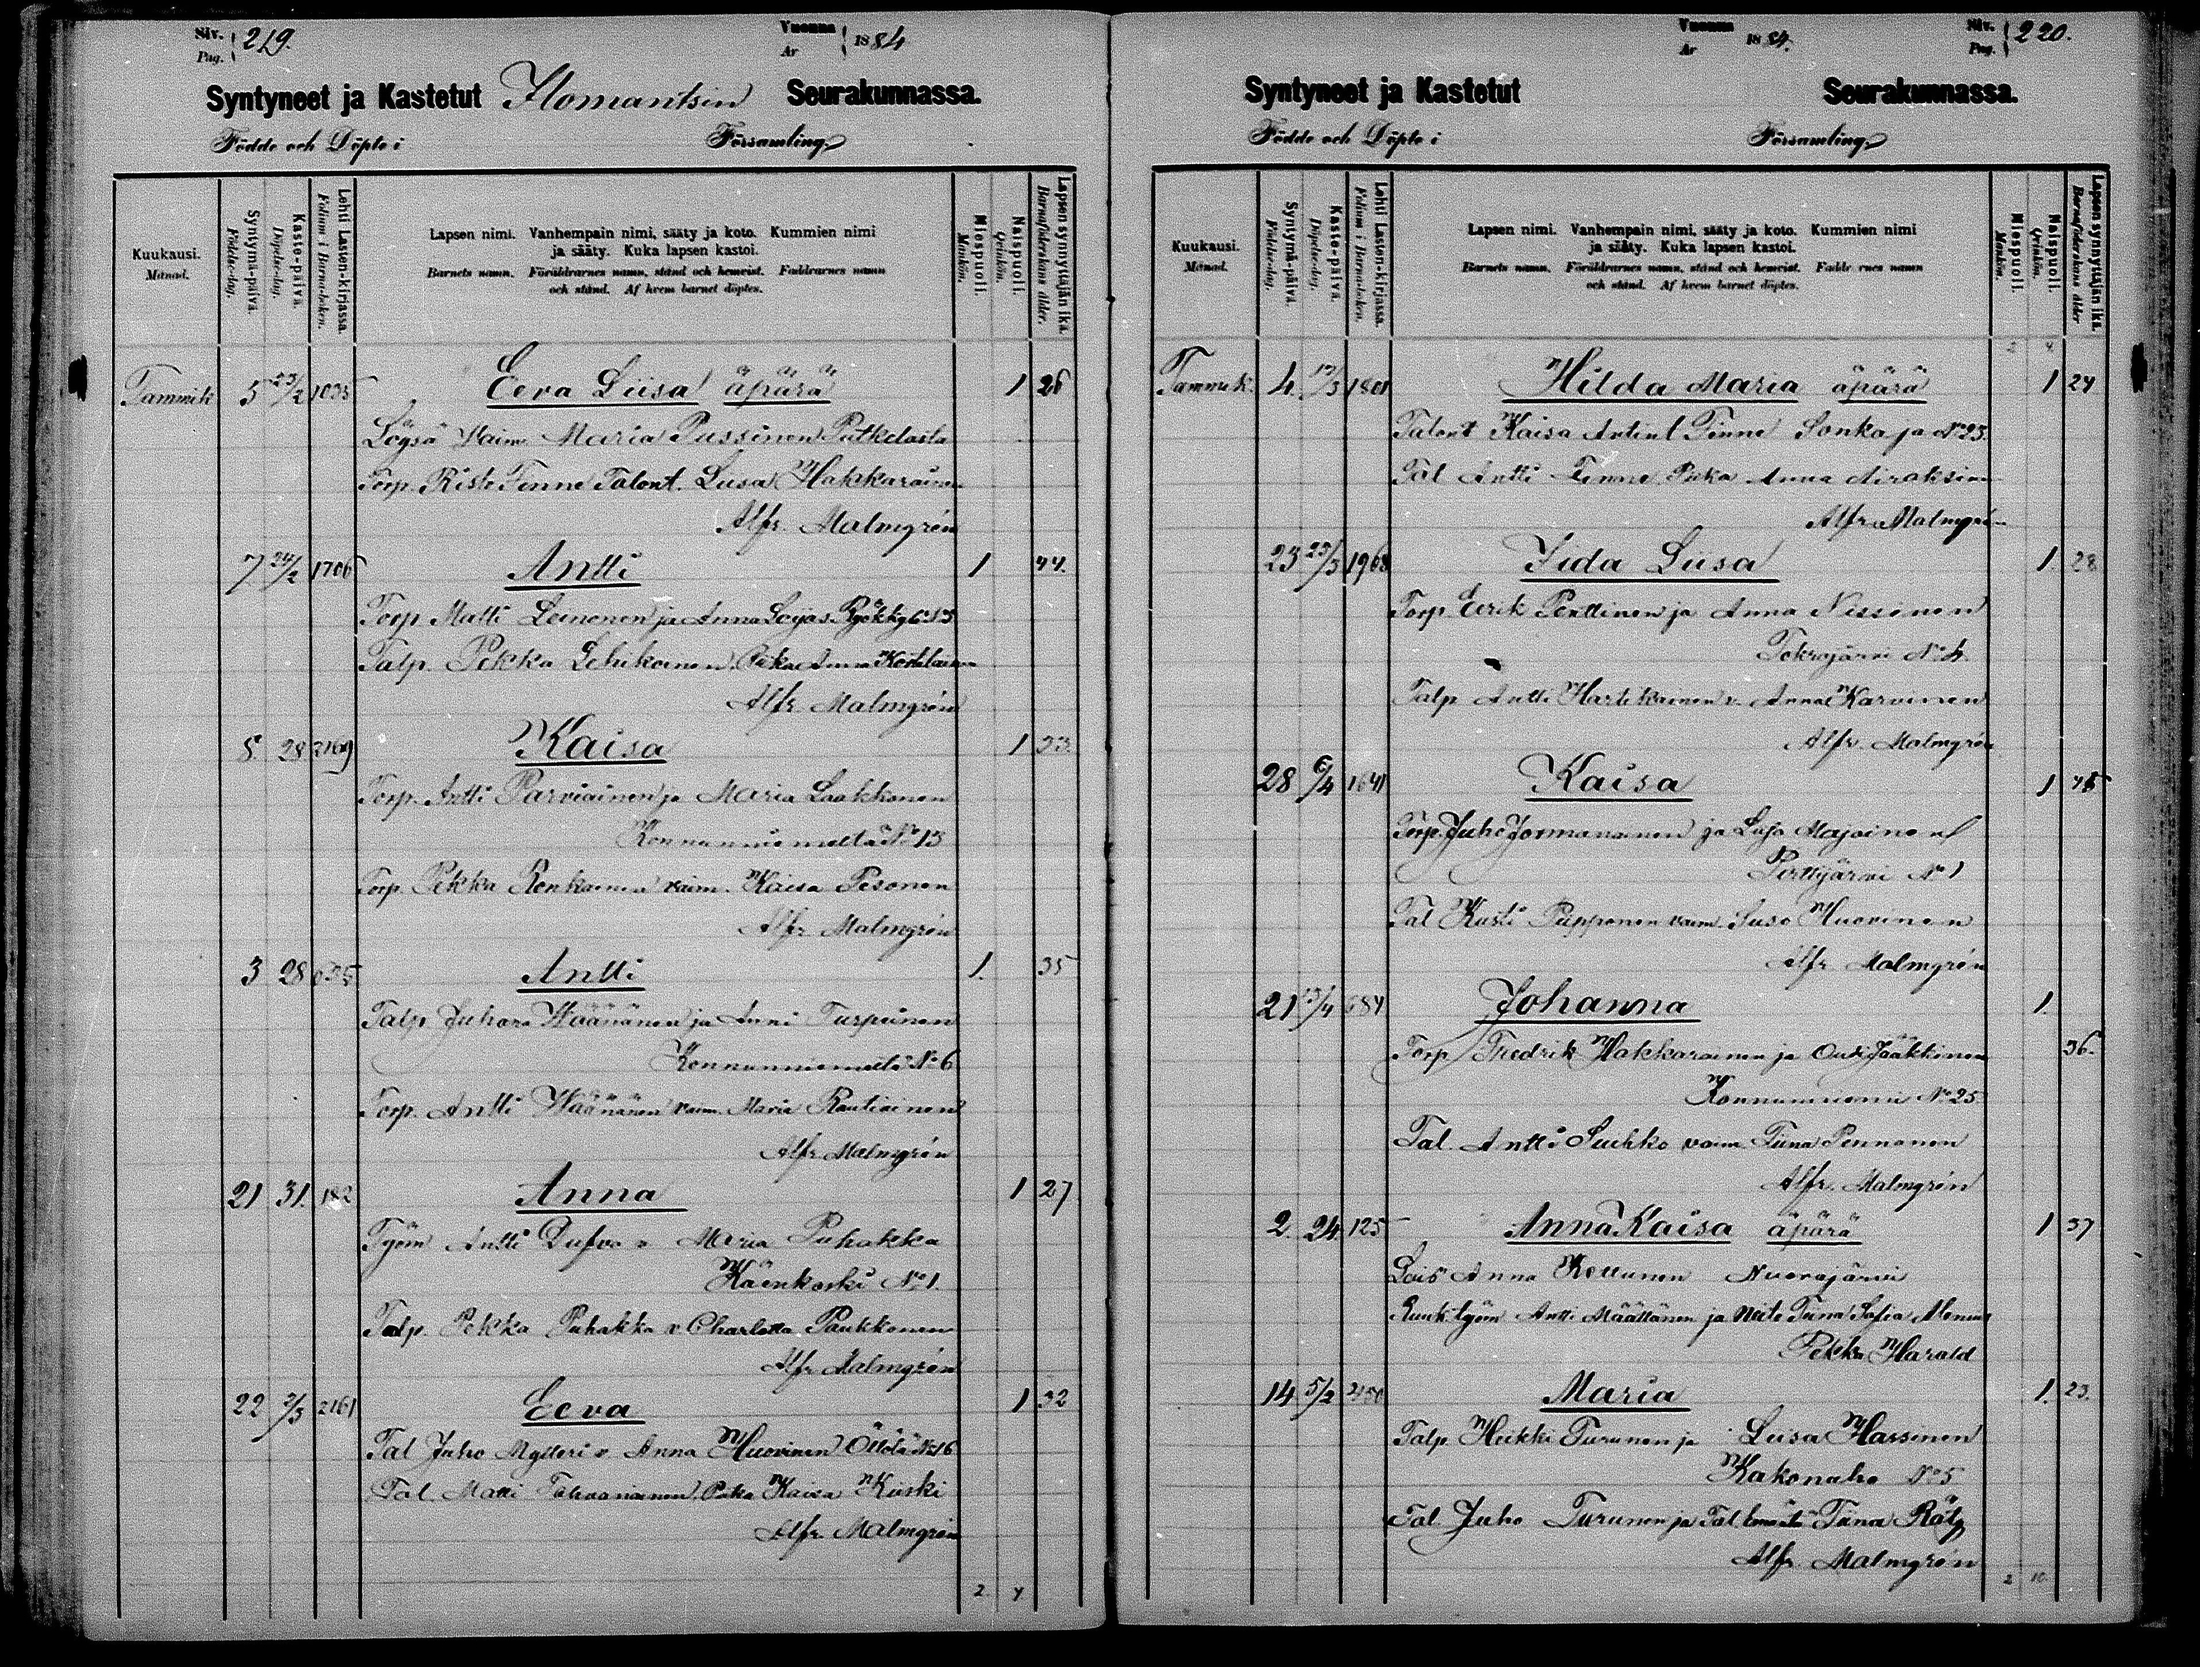 Siv. Pag. 219. Vuonna År 1884
Syntyneet ja Kastetut Ilomantsin Seurakunnassa.
Födde och Döpte i Församling.
Kuukausi. Månad.
Syntymä-päivä. Födelse-dag.
Kaste-päivä. Döpelse-dag.
Lehti Lasten-kirjassa. Folium i Barna-boken.
Lapsen nimi. Vanhempain nimi, sääty ja koto. Kummien nimi
ja sääty. Kuka lapsen kastoi.
Barnets namn. Föräldrarnes namn, stånd och hemvist. Faddrarnes namn
och stånd. Af hvem barnet döptes.
Miespuoli. Mankön.
Naispuoli. Qvinkön.
Lapsen synnyttäjän ikä. Barnaföderskans ålder.
Tammik 5 23/2 1035 Eeva Liisa äpärä 1 26
Vaim Maria Pussinen Putkelasta
Torp. Risto Tenne Talont. Liisa Hakkarainen
Alfr. Malmgrén
7 24/2 1706 Antti 1 44.
Torp Matti Leinonen ja Anna
Talp. Pekka Lehikoinen Piika Anna
Alfr Malmgrén
8. 28 2169 Kaisa 1 33.
Torp. Antti Parviainen ja Maria Laakkonen
Konnunniemeltä No 13
Torp. Pekka Ronkainen vaim. Kaisa Pesonen
Alfr Malmgrén
3 28 635 Antti 1. 35
Talp Juhana Wäänänen ja Anni Turpeinen
Konnunniemeltä No 6
Torp. Antti Wäänänen vaim. Maria Rautiainen
Alfr Malmgrén
21 31. 182 Anna 1 27
Työm Antti Dufva v Maria Puhakka
Käenkoski No 1.
Talp. Pekka Puhakka v Charlotta Paukkonen
Alfr Malmgrén
22 2/3 2161 Eeva 1 32
Tal Juho Mytteri v Anna Huovinen Öttölä No 16
Tal. Matti Tahvanainen Piika Kaisa Kuski
Alfr Malmgrén
2 4
Vuonna År 1884. Siv. Pag. 220.
Syntyneet ja Kastetut Seurakunnassa.
Födde och Döpte i Församling.
Kuukausi. Månad.
Syntymä-päivä. Födelse-dag.
Kaste-päivä. Döpelse-dag.
Lehti Lasten-kirjassa. Folium i Barnaboken.
Lapsen nimi. Vanhempain nimi, sääty ja koto. Kummien nimi
ja sääty. Kuka lapsen kastoi.
Barnets namn. Föräldrarnes namn, stånd och hemvist. Faddrarnes namn
och stånd. Af hvem barnet döptes.
Miespuoli. Mankön.
Naispuoli. Qvinkön.
Lapsen synnyttäjän ikä. Barnaföderskans ålder
2 4.
Tammik. 4. 12/3 1801 Hilda Maria äpärä 1 24
Talont Kaisa Antint Tinne Sonkaja No 23.
Tal Antti Tinne Piika Anna Airaksinen
Alfr Malmgrén
23 23/3 1968 Iida Liisa 1 28
Torp Eerik Penttinen ja Anna Nissinen
Tokrajärvi No 4.
Talp Antti Hartikainen v. Anna Karvinen
Alfr. Malmgrén
28 6/4 1641 Kaisa 1 45
Torp. Juho Jormanainen ja
Perttijärvi No 1
Tal Kusti Piipponen vaim. Huovinen
Alfr Malmgrén
21 13/4 684 Johanna 1.
Torp Fredrik Hakkarainen ja Outi Jääkkinen 36.
Konnunniemi No 25
Tal. Antti Suhko vaim Tiina Pennanen
Alfr. Malmgrén
2. 24. 125 Anna Kaisa äpärä 1 37
Lois Anna Kettunen Nuorajärvi
Ruuk. työm Antti Määttänen ja Neito Tiina Sofia
Pekka Harald
14. 5/2 Maria 1. 23.
Talp. Heikki Turunen ja Liisa Hassinen
Kakonaho No 5
Tal Juho Turunen ja Tal. Tiina Räty
Alfr. Malmgrén
2 10